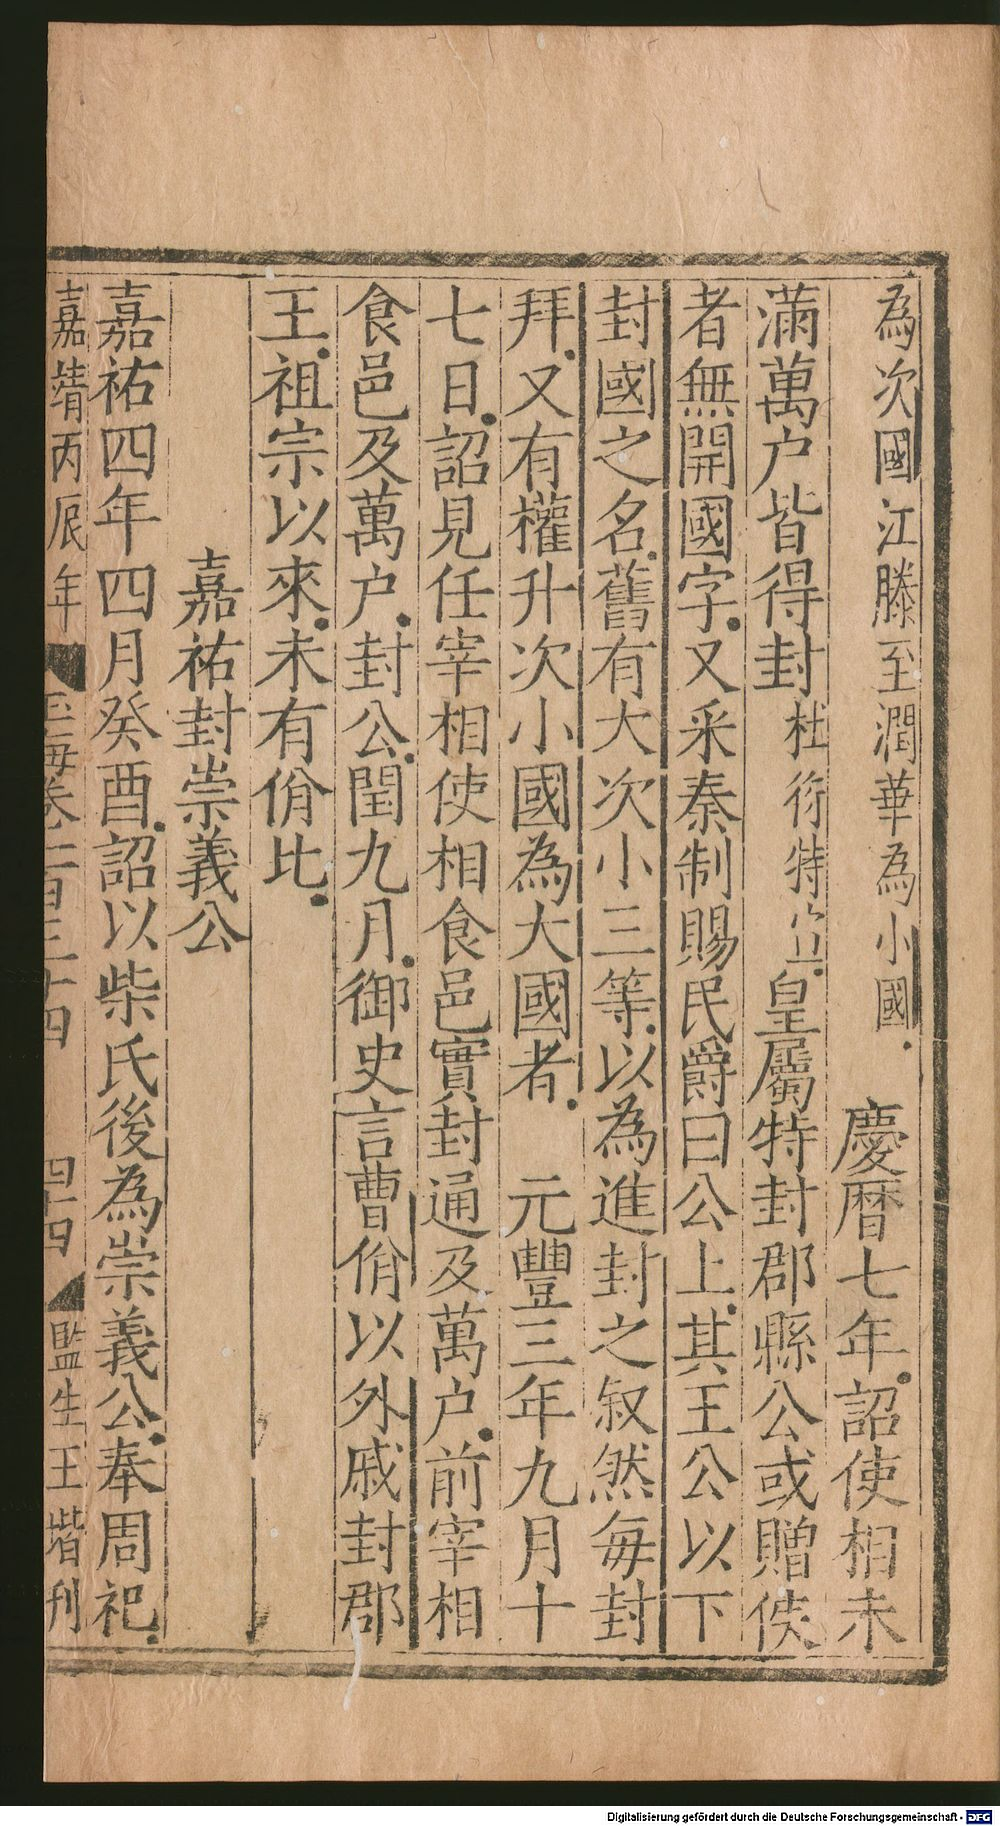 為次國江滕至潤華為小國．慶曆七年．詔使相未
滿萬户皆得封杜衍特㞴．皇屬特封郡縣公或贈侯
者無開國字．又采秦制賜民爵曰公上．其王公以下
封國之名．舊有大次小三等．以為進封之叙然每封
拜．又有權升次小國為大國者．元豐三年九月十
七日．詔見任宰相使相食邑實封通及萬户．前宰相
食邑及萬户．封公．閏九月．御史言曹佾以外戚封郡
王．祖宗以來．未有佾比．
嘉祐封崇義公
嘉祐四年四月癸酉．詔以柴氏後為崇義公．奉周祀．
嘉靖丙辰年 玉海卷一百三十四 四十四 監生王堦刊
Digitalisierung gefördert durch die Deutsche Forschungsgemeinschaft - DFG